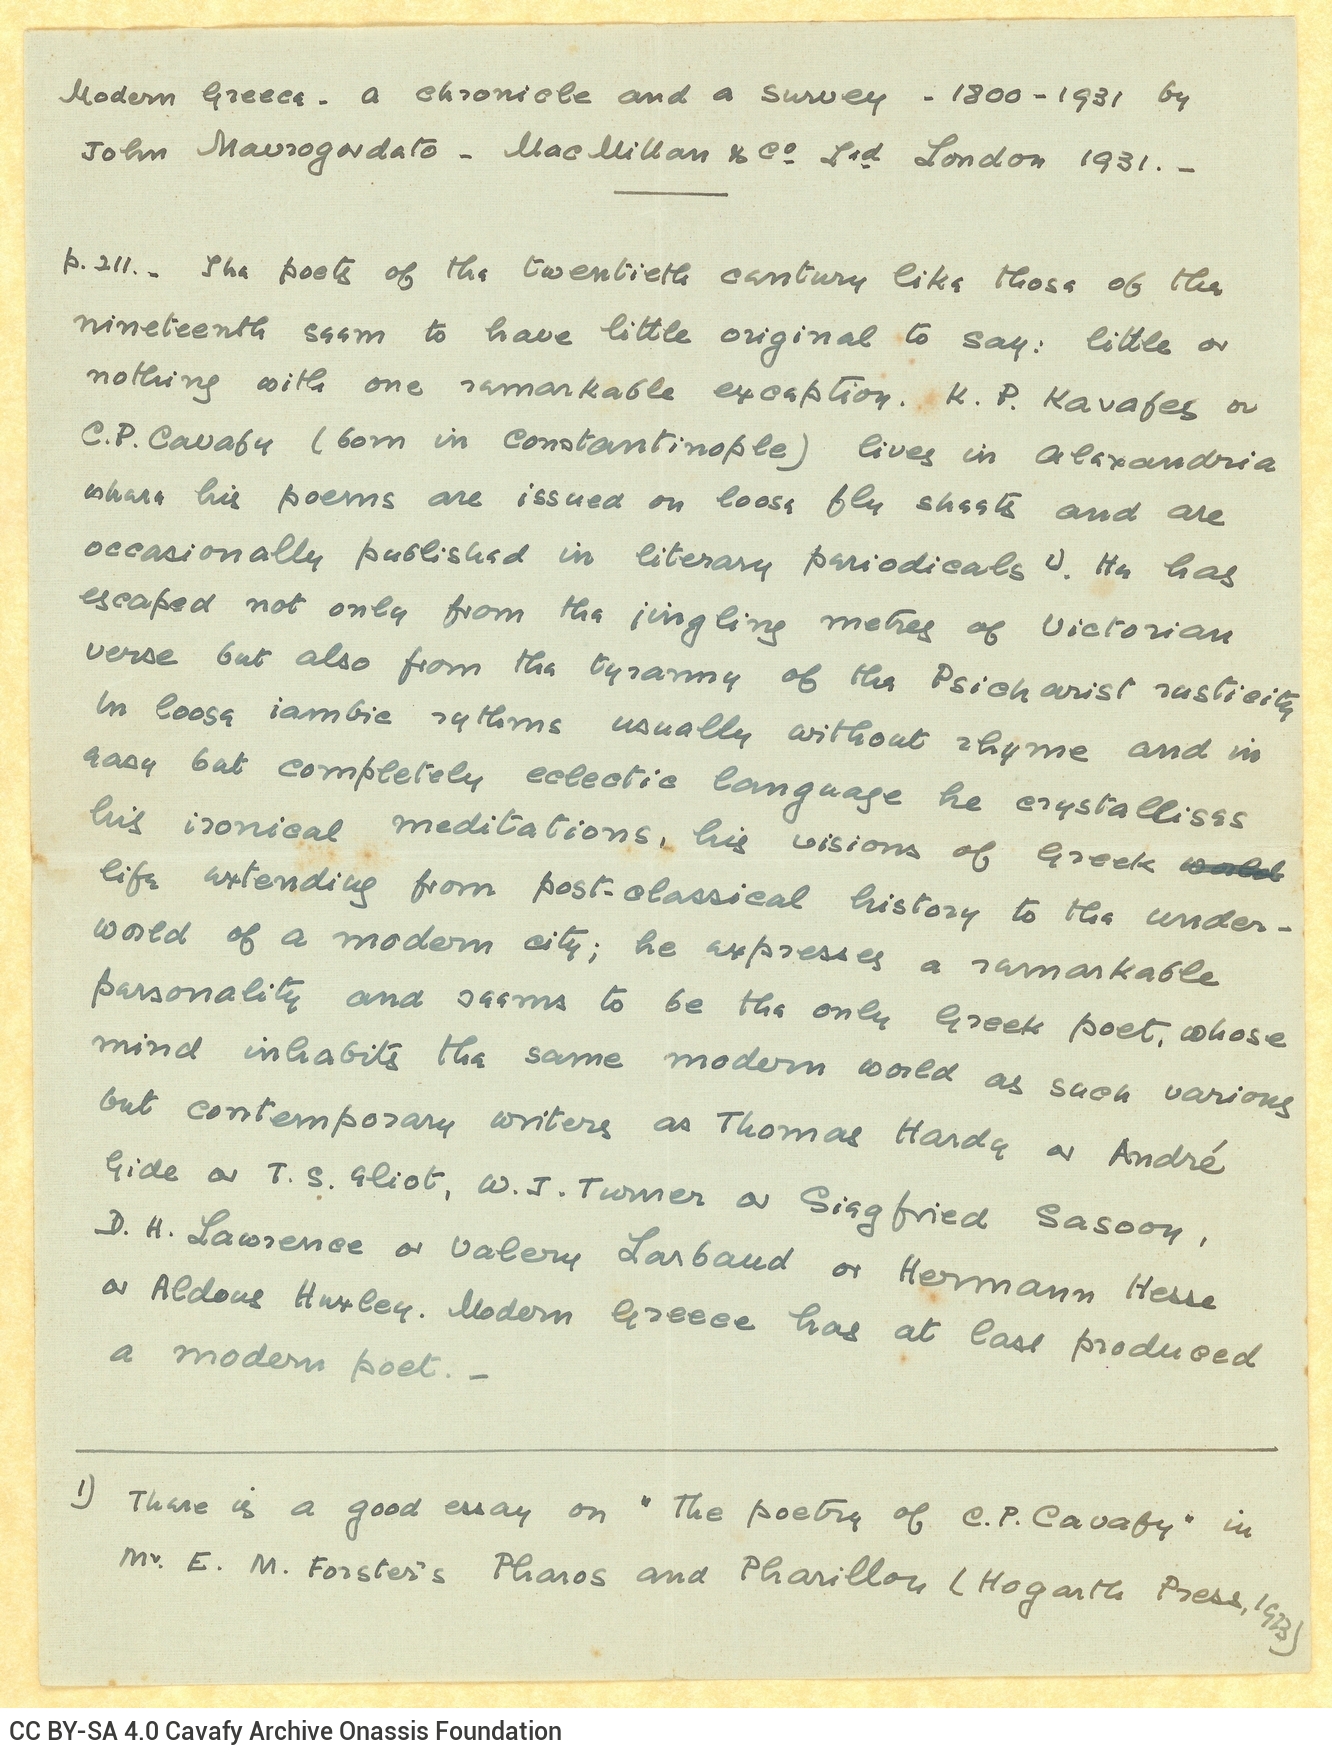 Modern Greece - a chronicle and a survey - 1800-1931 by
John Mavrogordato - MacMillan & Co Ltd London 1931. -
p. 211. - The poets of the twentieth century like those of the
nineteenth seem to have little original to say: little or
nothing with one remarkable exception. K. P. Kavafes or
C.P. Cavafy (born in Constantinople) lives in Alexandria
where his poems are issued on loose fly sheets and are
occasionally published in literary periodicals 1). He has
escaped not only from the jingling metres of Victorian
verse but also from the tyranny of the Psicharist rusticity
In loose iambic rythms usually without rhyme and in
easy but completely eclectic language he crystallises
his ironical meditations, his visions of Greek world
life extending from post-classical history to the under-
world of a modern city; he expresses a remarkable
personality and seems to be the only Greek poet, whose
mind inhabits the same modern world as such various
but contemporary writers as Thomas Hardy or André
Gide or T. S. Eliot, W. J. Turner or Siegfried Sasoon,
D. H. Lawrence or Valery Larbaud or Hermann Hesse
or Aldous Huxley. Modern Greece has at last produced
a modern poet. -
1) There is a good essay on "The poetry of C.P. Cavafy" in
Mr. E. M. Forster's Pharos and Pharillon (Hogarth Press, 1923)
CC BY-SA 4.0 Cavafy Archive Onassis Foundation